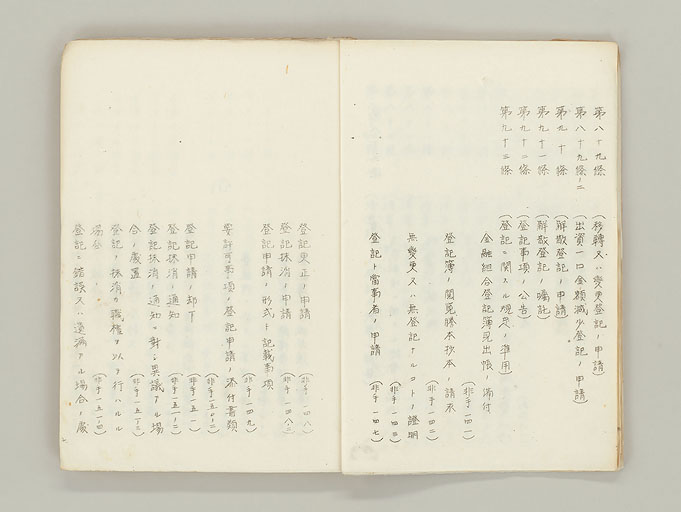 第八十九條 (移轉又ハ變更登記ノ申請)
第八十九條ノ二 (出資一口金額減少登記ノ申請)
第九十條 (解散登記ノ申請)
第九十一條 (解散登記ノ囑託)
第九十二條 (登記事項ノ公告)
第九十三條 (登記ニ關スル規定ノ準用)
金融組合登記簿見出帳ノ備付 (非手一四一)
登記簿ノ閲覧謄本抄本ノ請求 (非手一四二)
無變更又ハ無登記ナルコトノ證明 (非手一四三)
登記ト當事者ノ申請 (非手一四七)
登記更正ノ申請 (非手一四八)
登記抹消ノ申請 (非手一四八ノ二)
登記申請ノ形式ト記載事項 (非手一四九)
要許可事項ノ登記申請ノ添付書類 (非手一五〇ノ二)
登記申請ノ却下 (非手一五一)
登記抹消ノ通知 (非手一五一ノ二)
登記抹消ノ通知ニ對シ異議アル場
合ノ處置 (非手一五一ノ三)
登記ノ抹消ヲ職權ヲ以テ行ハルル
場合 (非手一五一ノ四)
登記ニ錯誤又ハ遺漏アル場合ノ處